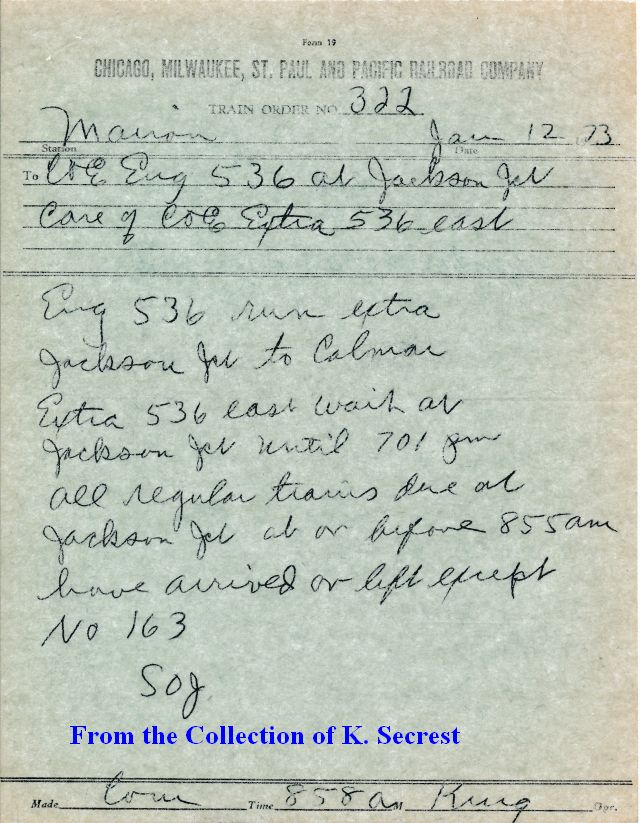 Form 19
CHICAGO, MILWAUKEE, ST. PAUL AND PACIFIC RAILROAD COMPANY
TRAIN ORDER NO 322
Marion Jan 12 73
Station Date
To C&E Eng 536 at Jackson Jct
Care of C&E Extra 536 east
Eng 536 run extra
Jackson Jct to Calmar
Extra 536 east wait at
Jackson Jct until 701 pm
all regular trains due at
Jackson Jct at or before 855 am
have arrived or left except
No 163
SOJ
From the Collection of K. Secrest
Made Com Time 858 a M King Opr.